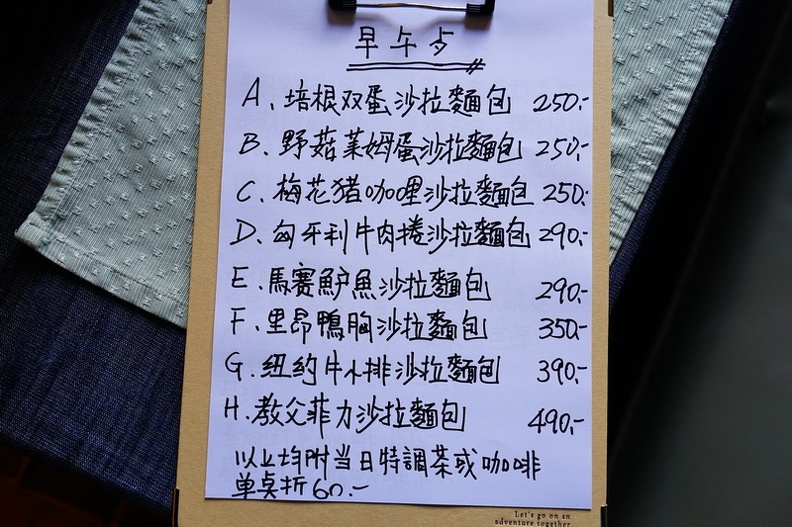 早午歺
A、培根双蛋沙拉麵包 250,-
B、野菇菜姆蛋沙拉麵包 250,-
C、梅花猪咖哩沙拉麵包 250,-
D、匈牙利牛肉捲沙拉麵包 290,-
E、馬赛魲魚沙拉麵包 290,-
F、里昂鴨胸沙拉麵包 350,-
G.纽約牛小排沙拉麵包 390,-
H.教父菲力沙拉麵包 490,-
以上均附当日特調茶或咖啡
单桌折60.-
Let's go on an
adventure together